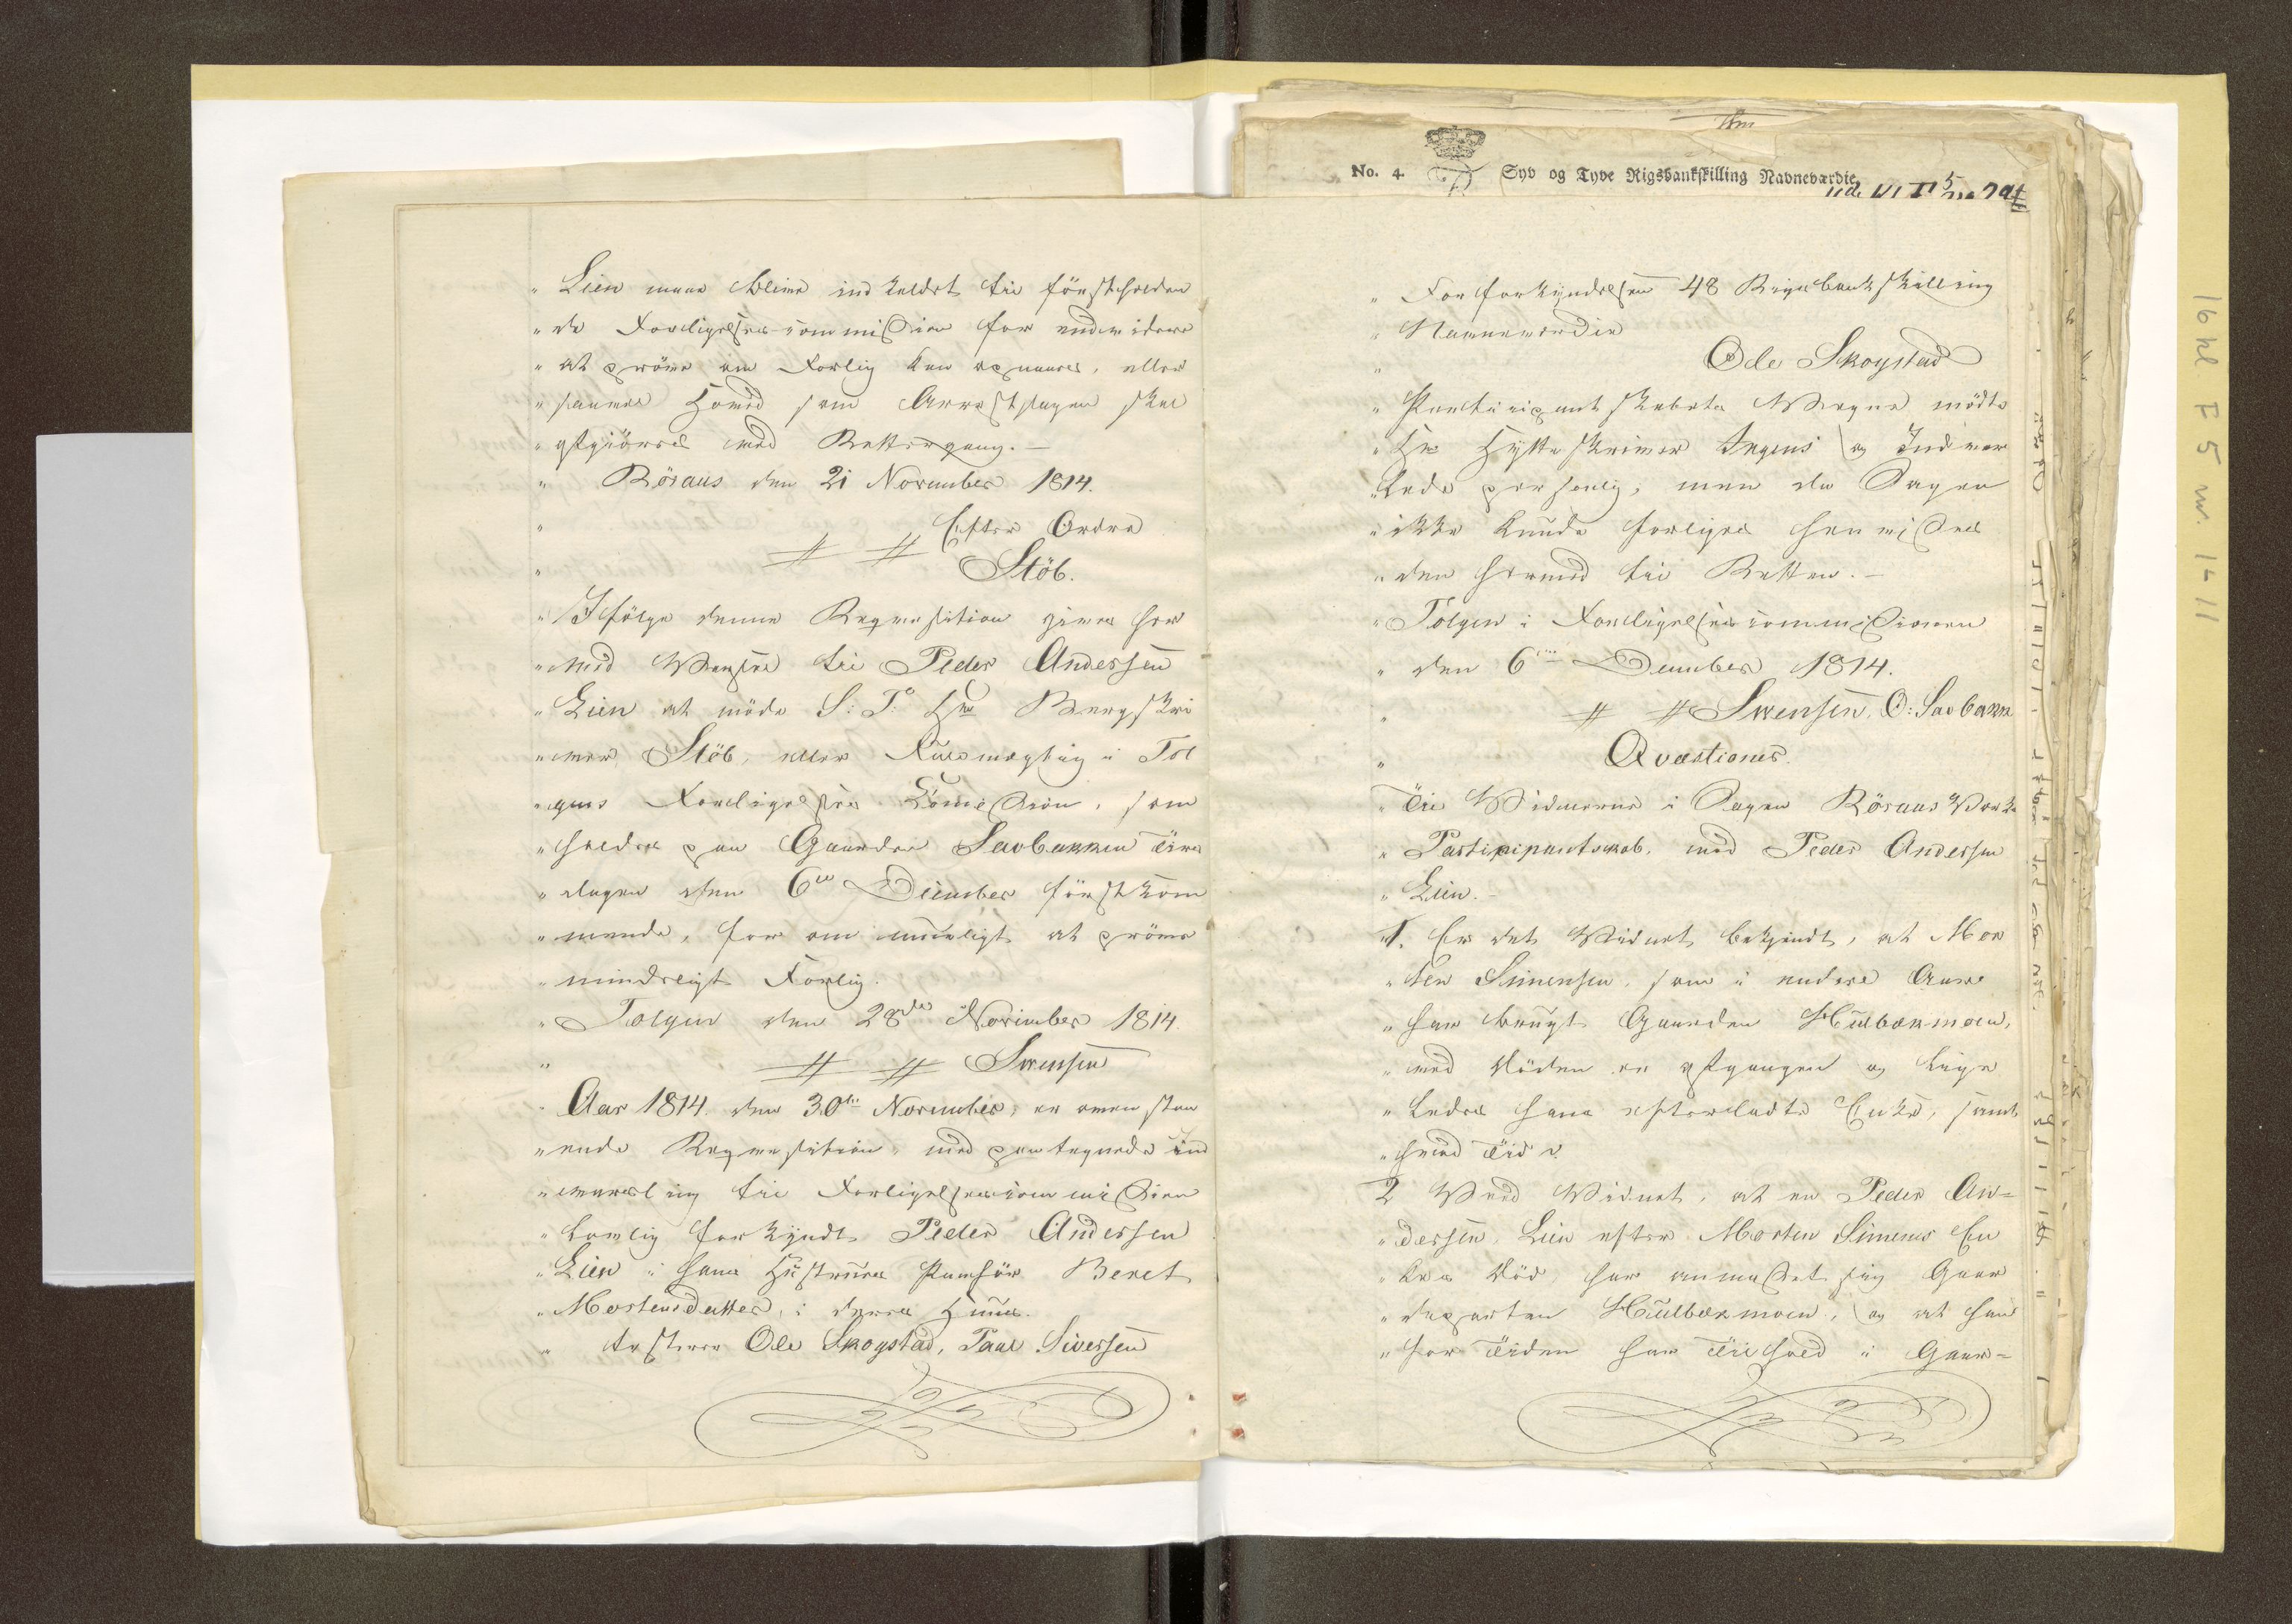 " Lien maae blive indkaldet til förstholden
" de Forligelses-commission for endvidere
" at pröve om Forlig kan opnaaes, eller
" saavel Hoved som Arrestsagen skal
" afgjöres ved Rettergang. –
" Röraas den 21 November 1814.
" Efter Ordre
" Stöb.
" Ifölge denne Reqvisition gives her
" ved Varsel til Peder Andersen
" Lien at möde S: T: Hr Bergskri
" ver Stöb, eller Fuldmægtig i Tol
" gens Forligelses Commission, som
" holdes paa Gaarden Savbakken Tirs
" dagen den 6te December förstkom
" mende, for om mueligt at pröve
" mindeligt Forlig.
" Tolgen den 28de November 1814.
" Svensen
" Aar 1814. den 30te November, er ovenstaa
" ende Reqvisition med paategnede Ind
" varsling til Forligelsescommission
" lovlig forkyndt Peder Andersen
" Lien i hans Hustrues Paahör Beret
" Mortensdatter, i deres Huus.
" testerer Ole Skogstad, Paul Siversen
No. 4. Syv og Tyve Rigsbankskilling Navneværdie.
" For forkyndelsen 48 Rigsbankskilling
" Navneværdie
" Ole Skogstad
" Participantskabets Vegne mödte
" Hr Hytteskriver Irgens og Indvar
" slede personlig, men da Sagen
" ikke kunde forliges henvises
" den herved til Retten. –
" Tolgen i Forligelsescommissionen
" den 6te December 1814.
" Svensen, O: Savbakk
" Qvæstioner.
" Til Vidnerne i Sagen Röraas Værks
" Participantskab, mod Peder Andersen
" Lien. –
" 1. Er det Vidnet bekjendt, at Mor
" ten Simensen, som i endeel Aar
" har brugt Gaarden Hulbækmoen,
" ved Döden er afgangen og lige
" ledes hans efterladte Enke, samt
" hvad Tid?
2 Veed Vidnet, at en Peder An=
" dersen Lien efter Morten Simens En
" kes Död, har anmasset sig Gaar
" departen Hulbækmoen, og at han
" for Tiden har Tilhold i Gaar=
16 hl F 5 nr. 1-11